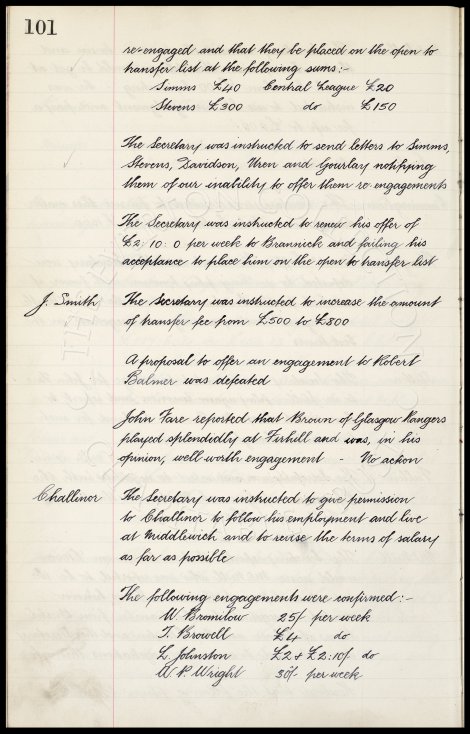 101
re-engaged and that they be placed on the open to
transfer list at the following sums:-
Simms £40 Central League £20
Stevens £300 do £150
The Secretary was instructed to send letters to Simms,
Stevens, Davidson, Uren and Gourlay notifying
them of our inability to offer them re engagements
The Secretary was instructed to renew his offer of
£2:10:0 per week to Brannick and failing his
acceptance to place him on the open to transfer list
J. Smith The Secretary was instructed to increase the amount
of transfer fee from £500 to £800
A proposal to offer an engagement to Robert
Balmer was defeated
John Fare reported that Brown of Glasgow Rangers
played splendidly at Firhill and was, in his
opinion, well worth engagement - No action
Challinor The Secretary was instructed to give permission
to Challinor to follow his employment and live
at Middlewich and to revise the terms of salary
as far as possible
The following engagements were confirmed:-
W. Bromilow 25/- per week
T. Browell £4 do
L. Johnston £2 + £2:10/- do
W. P. Wright 30/- per week